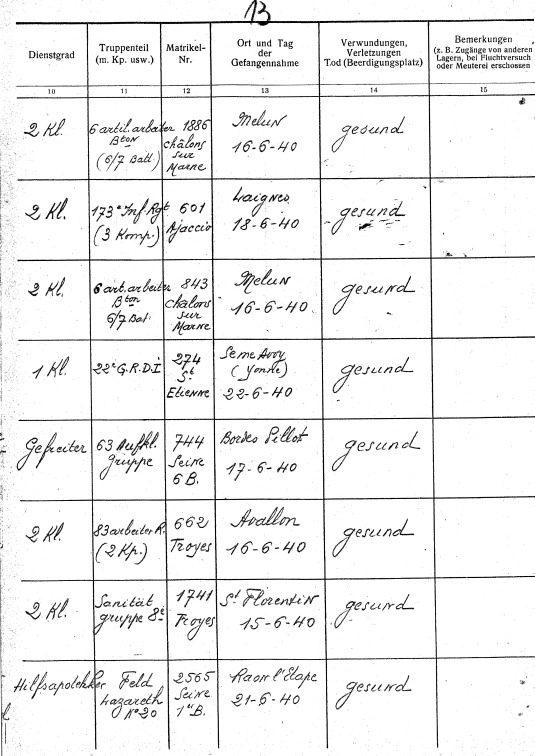 13
Dienstgrad
Truppenteil
(m. Kp. usw.)
Matrikel-
Nr.
Ort und Tag
der
Gefangennahme
Verwundungen,
Verletzungen
Tod (Beerdigungsplatz)
Bemerkungen
(z. B. Zugänge von anderen
Lagern, bei Fluchtversuch
oder Meuterei erschossen
10 11 12 13 14 15
2 Kl.
6 artil. arbeiter
Bton
(6/7 Batt.)
1886
châlons
sur
Marne
Melun
16-6-40
gesund
2 Kl.
173e Inf Rgt
(3 Komp.)
601
Ajaccio
Laignes
18-6-40
gesund
2 Kl.
6 art. arbeiter
Bton
6/7 Bat.
843
châlons
sur
Marne
Melun
16-6-40
gesund
1 Kl.
22e G.R.D.I
274
St
Etienne
(Yonne)
22-6-40
gesund
Gefreiter
63 Aufkl.
gruppe
744
Seine
6 B.
Bordes Pillot
17-6-40
gesund
2 Kl.
83 arbeiter R.
(2 Kp.)
662
Troyes
Avallon
16-6-40
gesund
2 Kl.
Sanität
gruppe 8t
1741
Troyes
St Florentin
15-6-40
gesund
Hilfsapotekker
Feld
Lazareth
No 20
2565
Seine
1er B.
Raon l'Etape
21-6-40
gesund